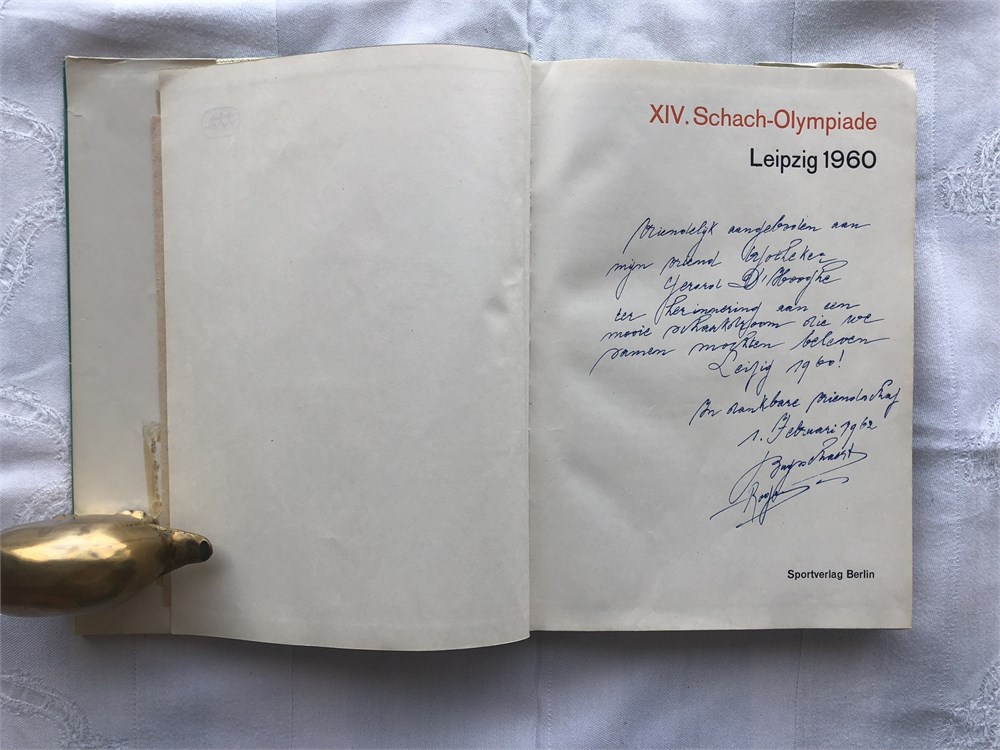 XIV. Schach-Olympiade
Leipzig 1960
Vriendelijk aangeboden aan
mijn vriend Apotheker
Gerard D'Hooghe
ter herinnering aan een
mooie schaakdroom die we
samen mochten beleven
Leipzig 1960!
In dankbare vriendschap
1. Februari 1962
Sportverlag Berlin